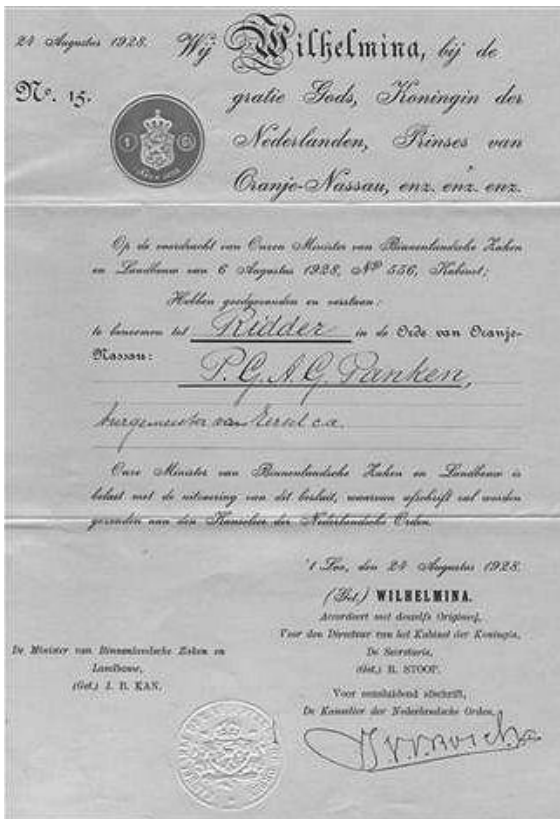 24 Augustus 1928.
No. 15.
Wij Wilhelmina, bij de
gratie Gods, Koningin der
Nederlanden, Prinses van
Oranje-Nassau, enz. enz. enz.
Op de voordracht van Onzen Minister van Binnenlandsche Zaken
en Landbouw van 6 Augustus 1928, No 556, Kabinet;
Hebben goedgevonden en verstaan:
te benoemen tot Ridder in de Orde van Oranje-
Nassau:
P. G. A. G. Panken,
burgemeester van Eersel c.a.
Onze Minister van Binnenlandsche Zaken en Landbouw is
belast met de uitvoering van dit besluit, waarvan afschrift zal worden
gezonden aan den Kanselier der Nederlandsche Orden.
't Loo, den 24 Augustus 1928.
(Get.) WILHELMINA.
Accordeert met deszelfs Origineel,
Voor den Directeur van het Kabinet der Koningin,
De Secretaris,
(Get.) R. STOOP.
De Minister van Binnenlandsche Zaken en
Landbouw,
(Get.) J. B. KAN.
Voor eensluidend afschrift,
De Kanselier der Nederlandsche Orden,